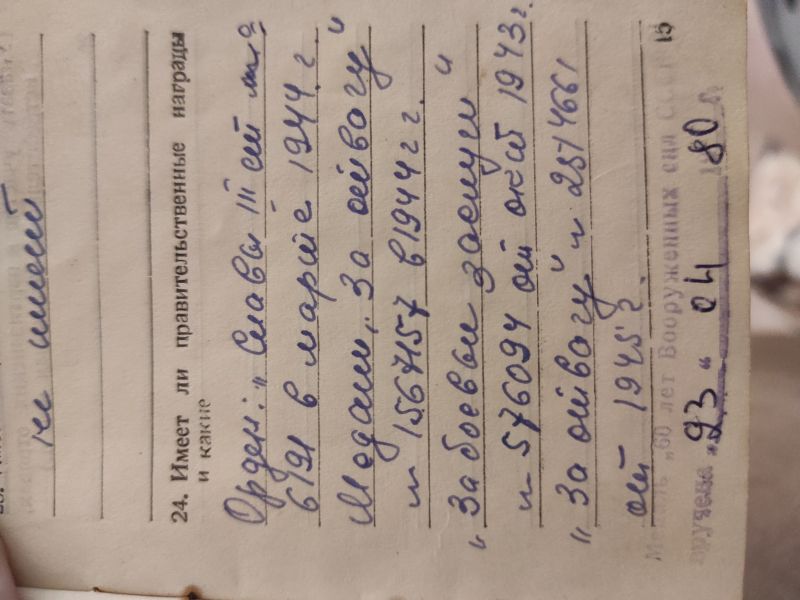 не имеет
24. Имеет ли правительственные награды
и какие
Орден: „Славы III ст
в марте 1944 г.
Медали „За отвагу"
№ 1567157 в 1944 г.
„За боевые заслуги"
№ 576094 от окт 1943 г.
„За отвагу" № 2814661
от 1945 г.
15
Медаль „60 лет Вооруженных сил СССР"
вручена „23" 04 1980 г.